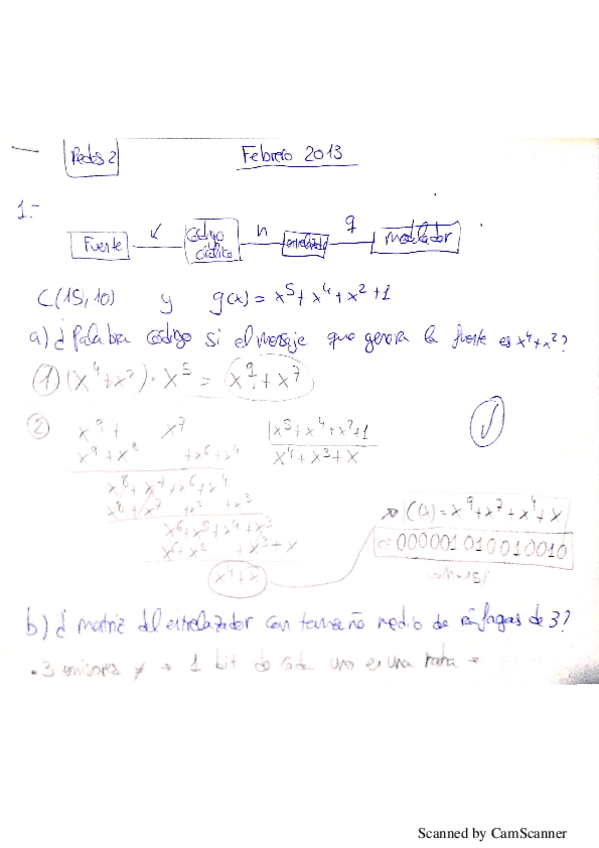 Redes 2
Febrero 2013
1.-
Fuente K Código Cíclico n entrelazador q modulador
C(15,10) y g(x) = x⁵+x⁴+x²+1
a) ¿Palabra código si el mensaje que genera la fuente es x⁴+x²?
① (x⁴+x²)·x⁵ = x⁹+x⁷
② x⁹+ x⁷ |x⁵+x⁴+x²+1
x⁹+x⁸ +x⁶+x⁴ x⁴+x³+x
x⁸+x⁷+x⁶+x⁴
x⁸+x⁷ +x⁵ +x³
x⁶+x⁵+x⁴+x³
x⁶+x⁵ +x³+x
x⁴+x
C(x)=x⁹+x⁷+x⁴+x
c=000001010010010
n=15
b) ¿matriz del entrelazador con tamaño medio de ráfagas de 3?
. 3 ≠ → 1 bit de cada uno es una →
Scanned by CamScanner